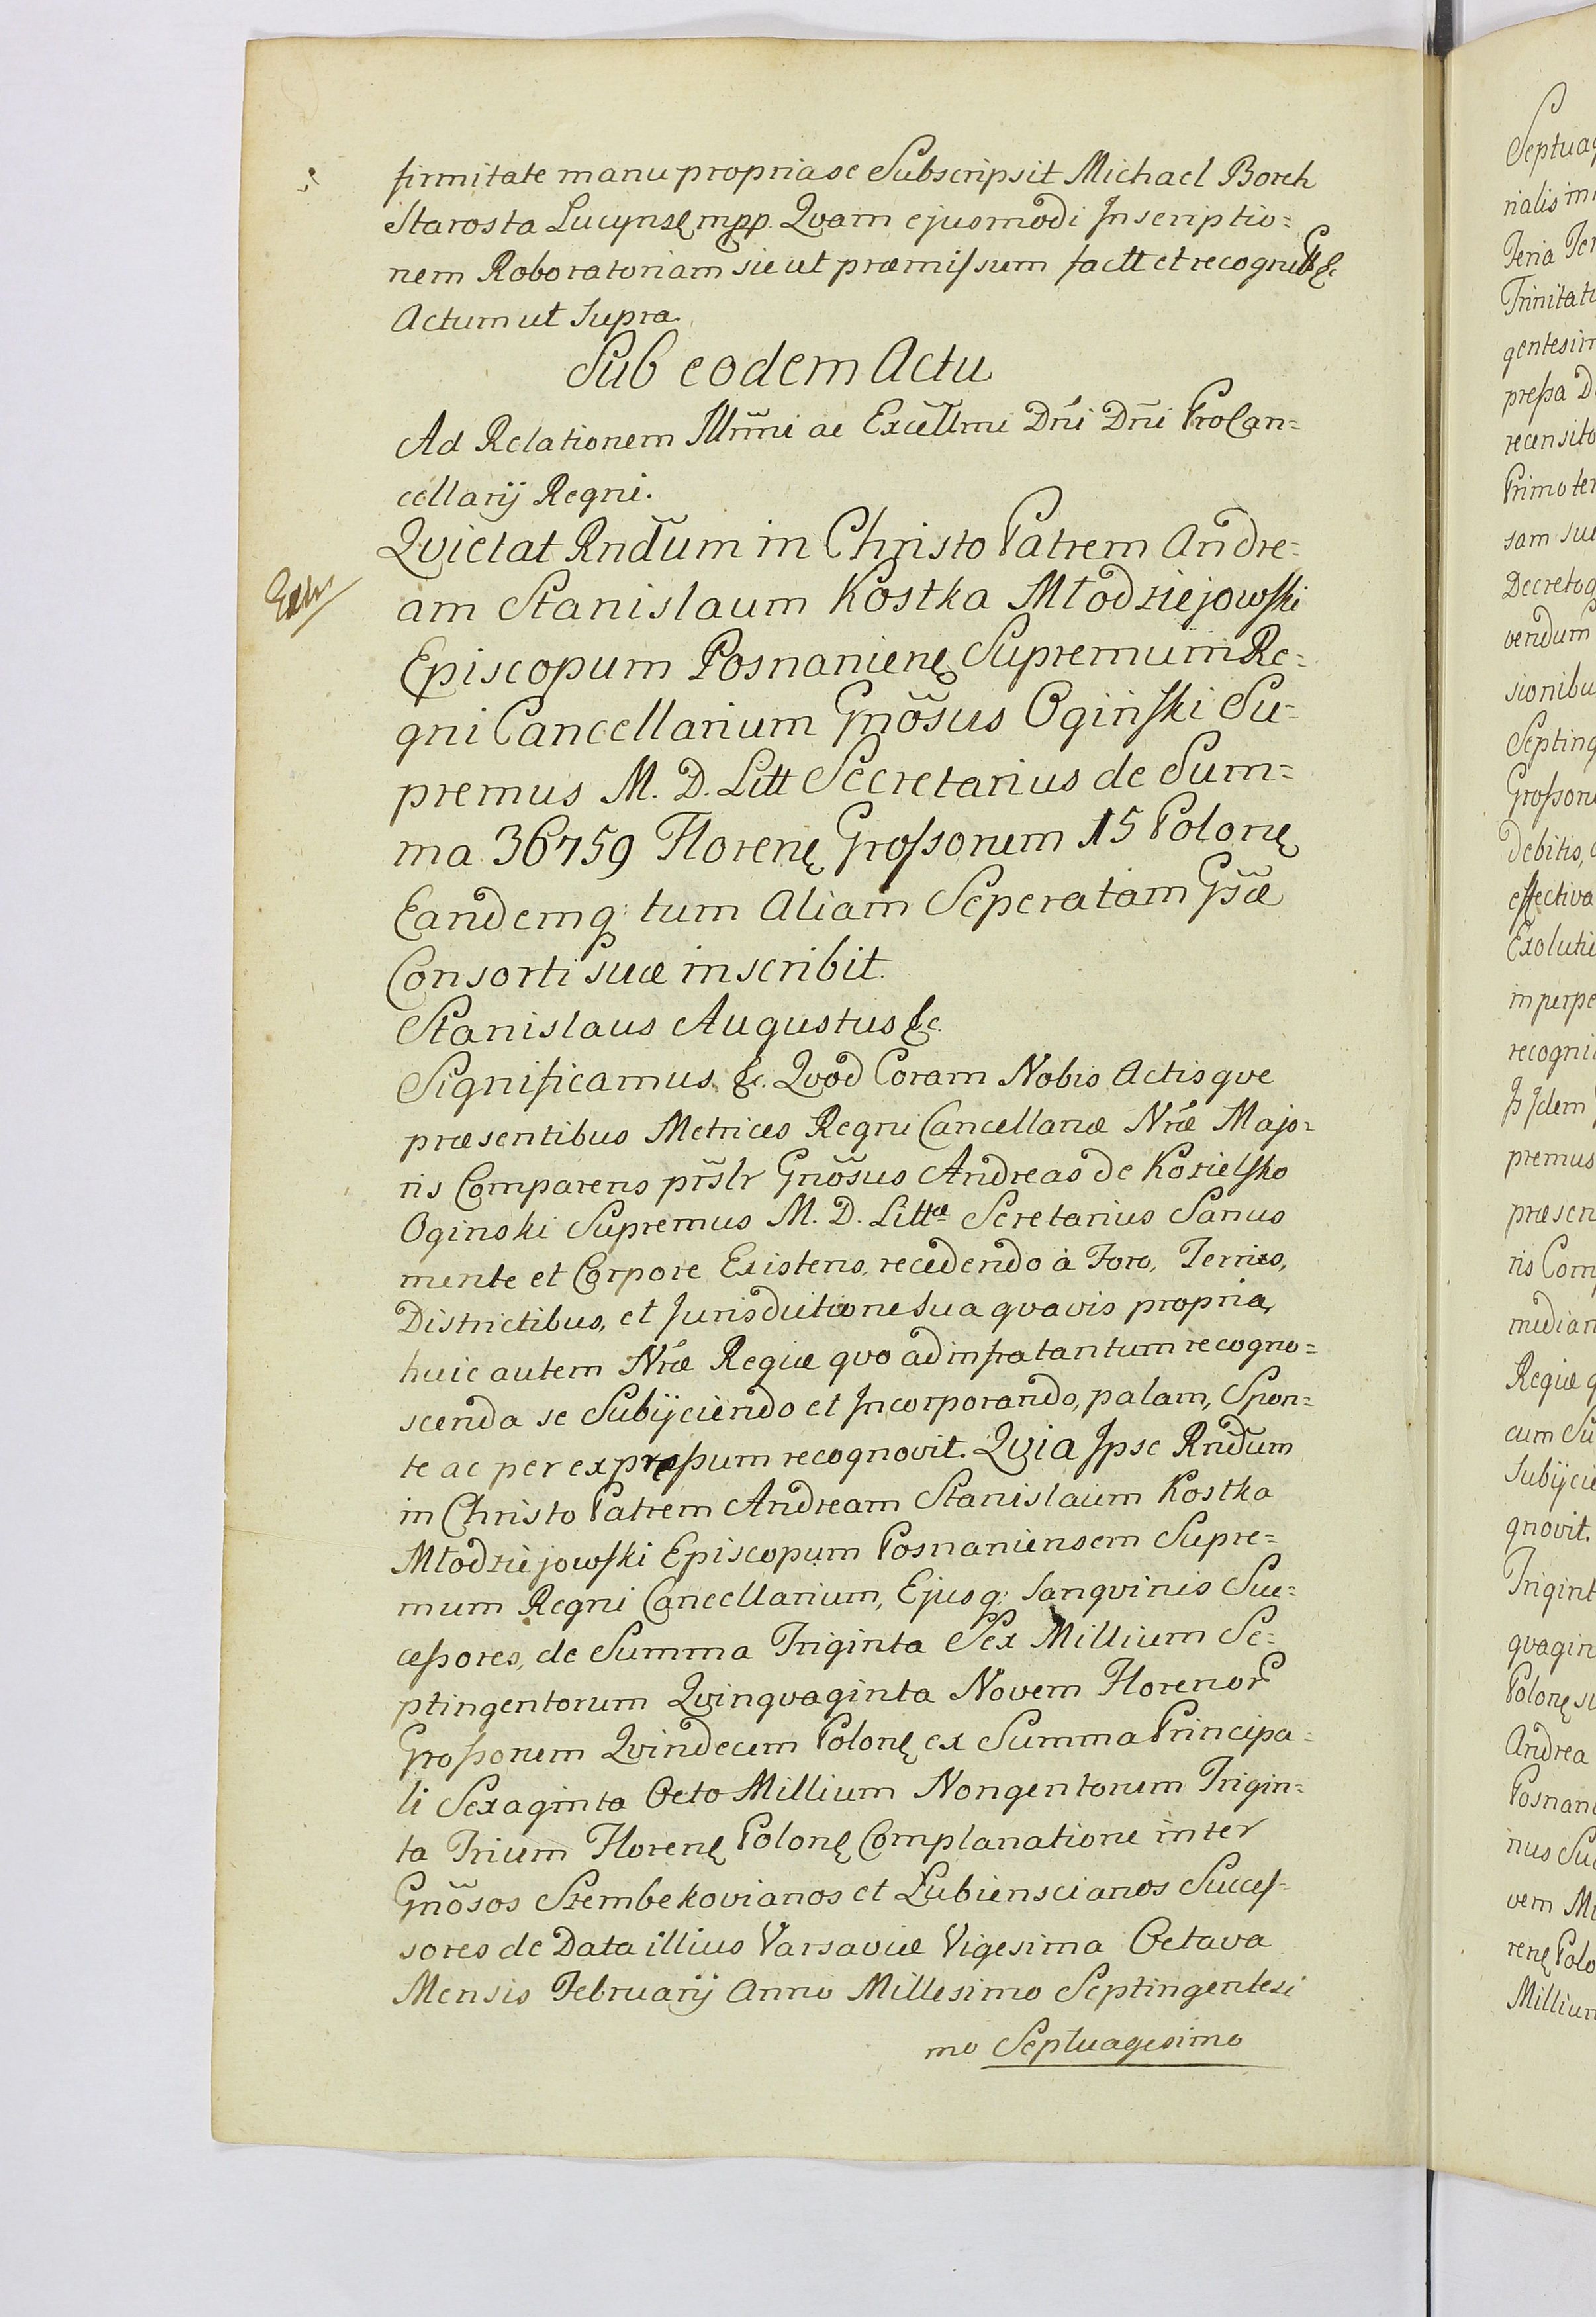 firmitate manu propria se Subscripsit Michael Borch
Starosta Lucynsę mpp. Qvam ejusmodi Inscriptio=
nem Roboratoriam sicut præmissum factt et recognitt &c
Actum ut Supra.
Sub eodem Actu
Ad Relationem Illr̃mi ac Excell̃mi Dñi Dñi ProCan=
cellarij Regni.
Qvietat Rnd̃um in Christo Patrem Andre=
am Stanislaum Kostka Młodziejowski
Episcopum Posnanienę Supremum Re=
gni Cancellarium Gñosus Oginski Su=
premus M. D. Litt Secretarius de Sum=
ma 36759 Florenę Grossorum 15 Polonę
Eandemq: tum Aliam Seperatam Gsæ̃
Consorti suæ inscribit.
Stanislaus Augustus &c.
Significamus &c. Qvod Coram Nobis Actisqve
præsentibus Metrices Regni Cancellariæ Nr̃æ Majo=
ris Comparens pr̃slr Gñosus Andreas de Kozielsko
Oginski Supremus M. D. Littæ Scretarius Sanus
mente et Corpore Existens, recedendo à Foro, Terris,
Districtibus, et Jurisdictione sua qvavis propria,
huic autem Nr̃æ Regiæ qvo ad infra tantum recogno=
scenda se Subijciendo et Incorporando, palam, Spon=
te ac per expressum recognovit. Qvia Ipse Rnd̃um
in Christo Patrem Andream Stanislaum Kostka
Młodziejowski Episcopum Posnaniensem Supre=
mum Regni Cancellarium, Ejusq: Sangvinis Suc=
cessores, de Summa Triginta Sex Millium Se=
ptingentorum Qvinqvaginta Novem Florenor
Grossorum Qvindecim Polonę ex Summa Principa=
li Sexaginta Octo Millium Nongentorum Trigin=
ta Trium Florenę Polonę Complanatione inter
Gñosos Szembekovianos et Lubienscianos Succes=
sores de Data illius Varsaviæ Vigesima Octava
Mensis Februarij Anno Millesimo Septingentesi
mo Septuagesimo
Septuag
rialis in
Feria Ter
Trinitati
gentesim
pressa D
recensito
Primo ter
sam su
Decretoq
vendum
sionibu
Septing
Grossoru
debitis,
effectiva
Exolutio
in perpe
recogni
Is Idem
premus
præsen
ris Com
median
Regiæ q
cum Su
Subijcie
gnovit.
Trigint
qvagin
Polonę su
Andrea
Posnani
inus Suc
vem Mi
renę Polo
Millium